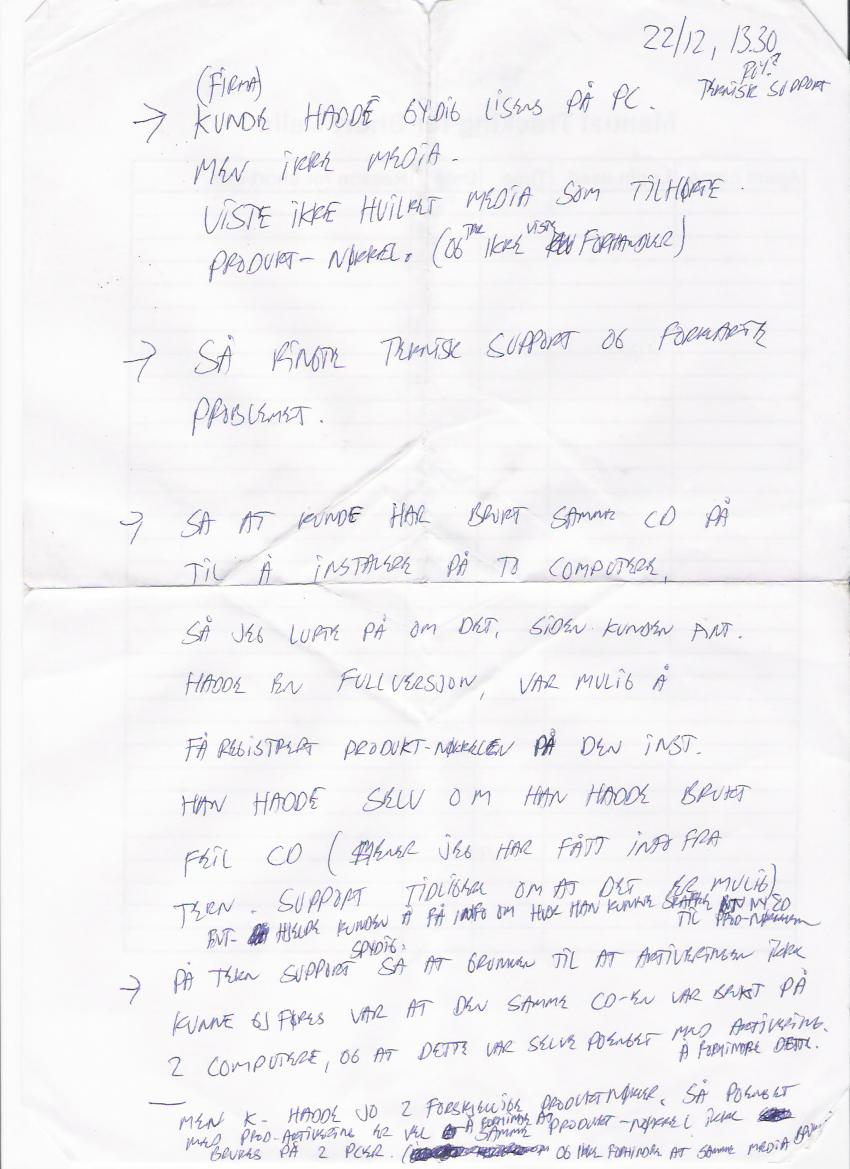 22/12, 13.30
TEKNISK SUPPORT
(FIRMA)
→ KUNDE HADDE GYDIG LISENS PÅ PC.
MEN IKKE MEDIA.
VISTE IKKE HVILKET MEDIA SOM TILHØRTE.
PRODUKT-NØKKEL. (OG IKKE VISTE FORHANDLER)
→ SÅ RINGTE TEKNISK SUPPORT OG FORKLARTE
PROBLEMET.
→ SA AT KUNDE HAR BRUKT SAMME CD PÅ
TIL Å INSTALERE PÅ TO COMPUTERE.
SÅ JEG LURTE PÅ OM DET, SIDEN KUNDEN ANT.
HADDE EN FULLVERSJON, VAR MULIG Å
FÅ REGISTRERT PRODUKT-NØKKELEN PÅ DEN INST.
HAN HADDE SELV OM HAN HADDE BRUKT
FEIL CD (MENER JEG HAR FÅTT INFO FRA
TEKN. SUPPORT TIDLIGERE OM AT DET ER MULIG)
EVT- HJELPE KUNDEN Å FÅ INFO OM HVOR HAN KUNNE SKAFFE EN NY CD
TIL PROD-NØKKELEN
SPYDIG.
→ PÅ TEKN SUPPORT SA AT GRUNNEN TIL AT AKTIVERINGEN IKKE
KUNNE GJØRES VAR AT DEN SAMME CD-EN VAR BRUKT PÅ
2 COMPUTERE, OG AT DETTE VAR SELVE POENGET MED AKTIVERING.
Å FORHINDRE DETTE.
MEN K- HADDE JO 2 FORSKJELLIGE PRODUKTNØKLER. SÅ POENGET
MED PROD-AKTIVERING ER VEL Å FORHINDRE AT SAMME PRODUKT-NØKKEL IKKE
BRUKES PÅ 2 PCER. OG IKKE FORHINDRE AT SAMME MEDIA BRUKES